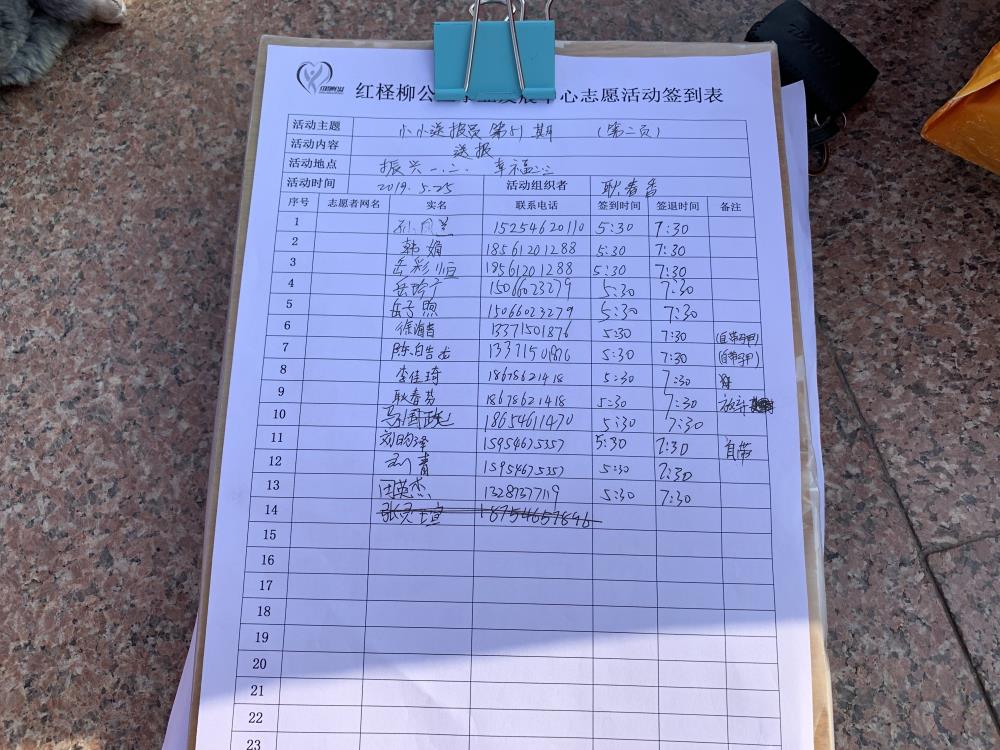 红柽柳公 发展中心志愿活动签到表
活动主题 小小送报员第51期 (第二页)
活动内容 送报
活动地点 振兴一.二. 幸福
活动时间 2019.5.25 活动组织者 耿春香
序号 志愿者网名 实名 联系电话 签到时间 签退时间 备注
1 15254620110 5:30 7:30
2 韩娟 18561201288 5:30 7:30
3 岳彩恒 18561201288 5:30 7:30
4 岳玲广 15066023279 5:30 7:30
5 岳子煦 15066023279 5:30 7:30
6 徐海青 13371501876 5:30 7:30 (自带马甲)
7 13371501876 5:30 7:30 (自带马甲)
8 李佳琦 18678621418 5:30 7:30
9 耿春芬 18678621418 5:30 7:30
10 18654611470 5:30 7:30
11 刘昀泽 15954675357 5:30 7:30 自带
12 刘青 15954675357 5:30 7:30
13 田英杰 13287377119 5:30 7:30
14 张灵宣 18754657846
15
16
17
18
19
20
21
22
23